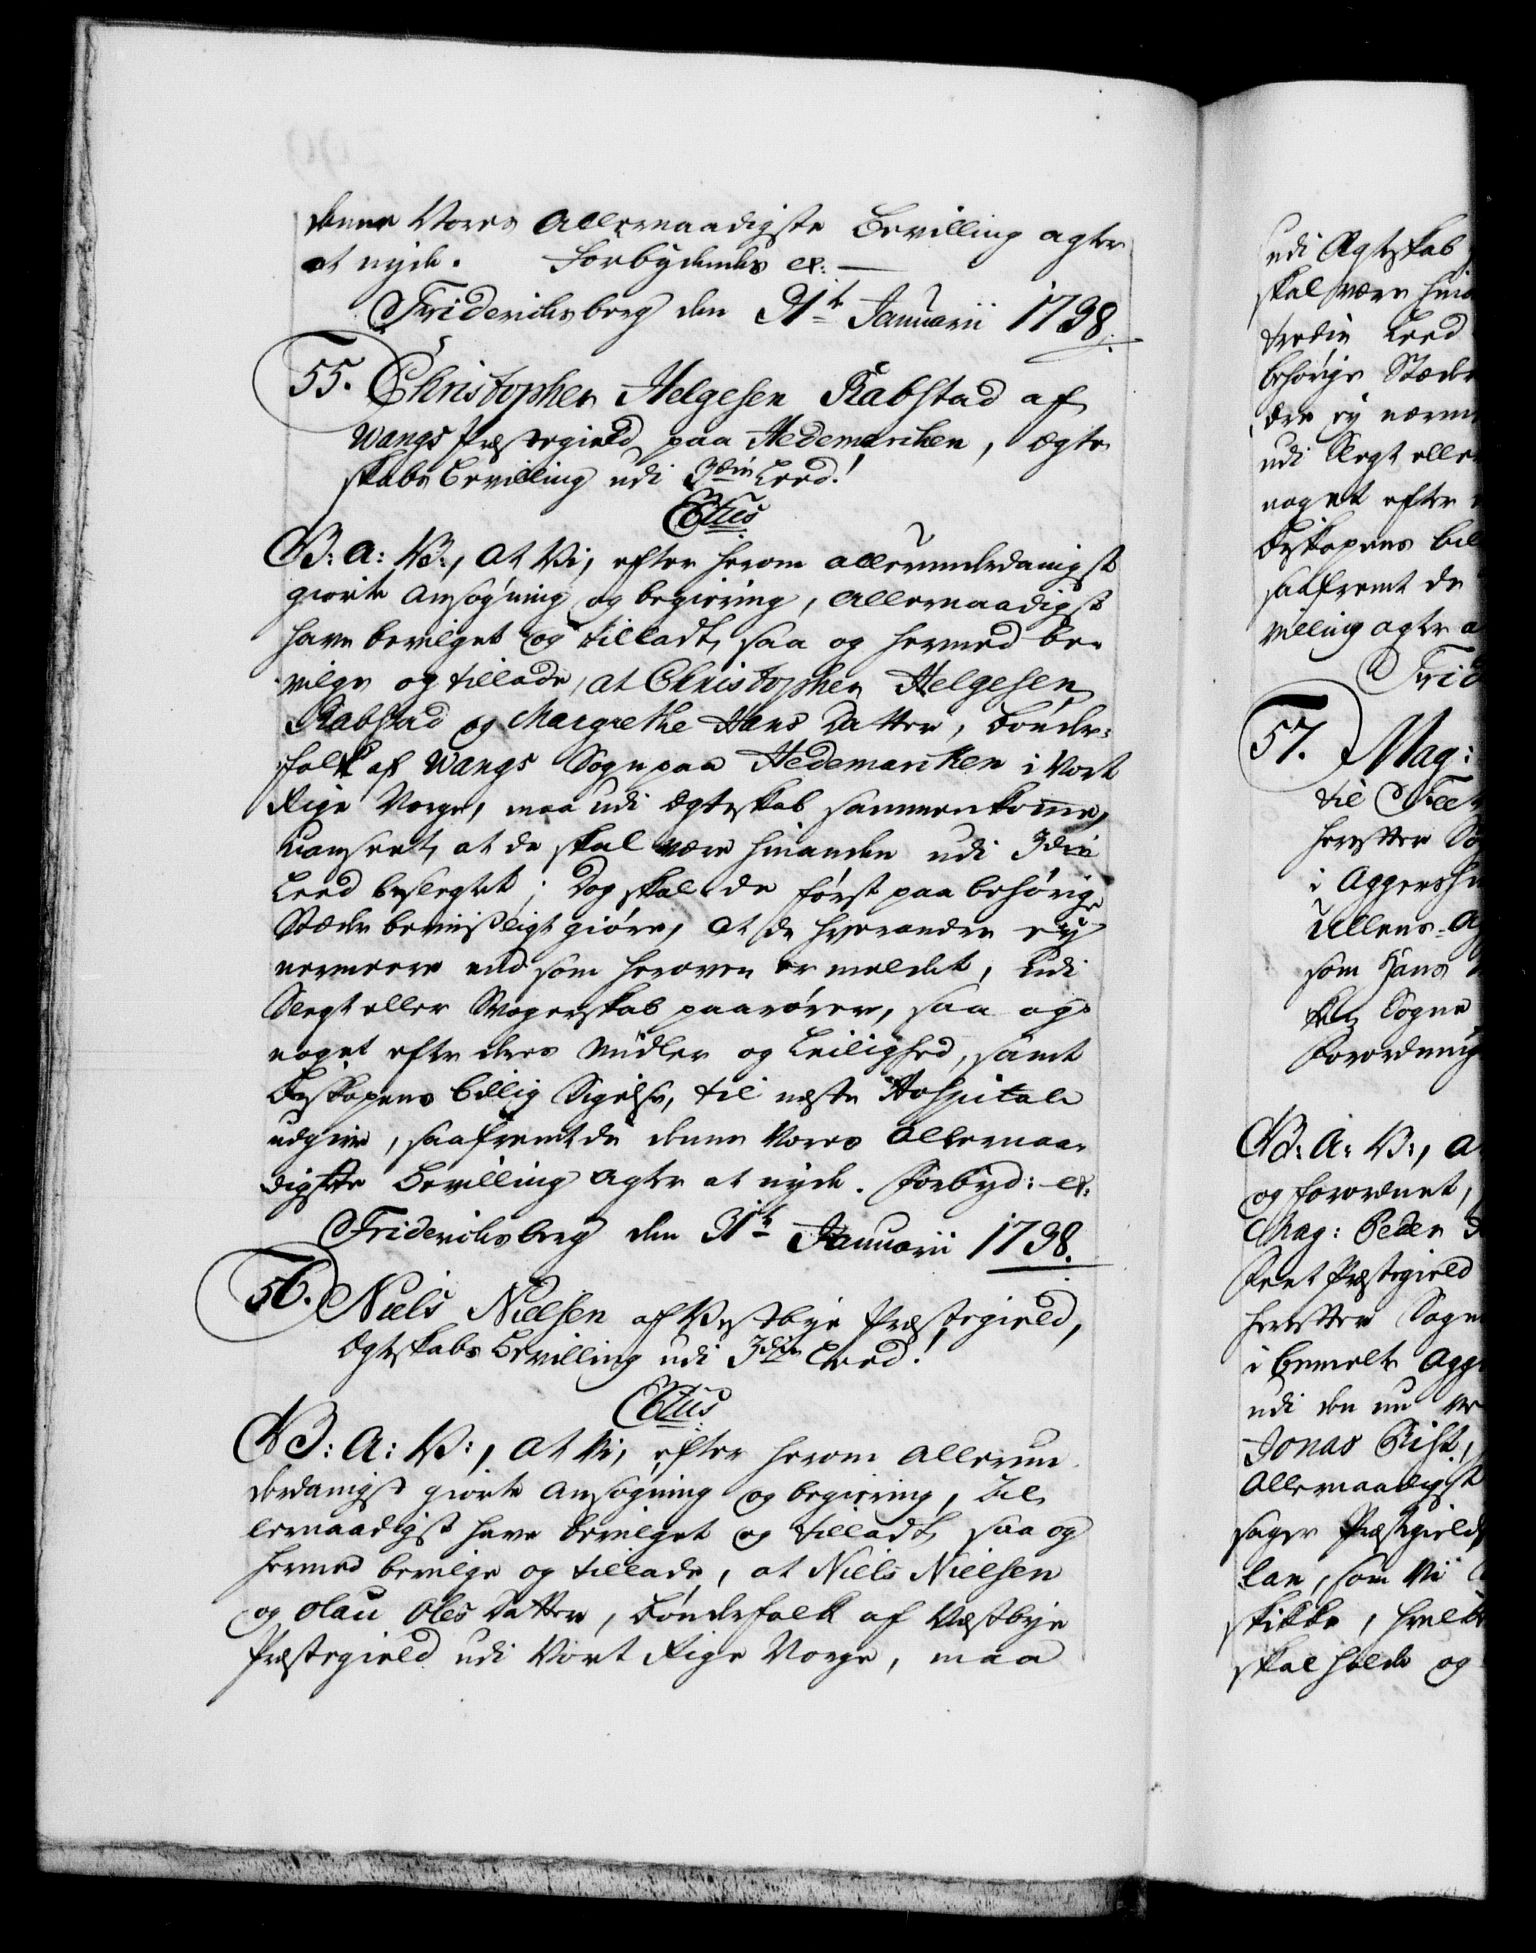 denne Vores Allernaadigste Bevilling agter
at nyde. Forbydendes etc:
Friderichsberg den 31te Januarii 1738.
55. Christopher Helgesen Rabstad af
Wangs Præstegield paa Hedemarchen, Ægte
skabs Bevilling udi 3die Leed!
C6tus
V: G: A: V:, at Vi, efter herom allerunderdanigst
giorte Ansøgning og begiering, Allernaadigst
have bevilget og tilladt, saa og hermed be-
vilge og tillade, at Christopher Helgesen
Rabstad og Margrethe Hans Datter, Bønder-
folk af Wangs Sogn paa Hedemarchen i Vort
Rige Norge, maa udi Ægteskab sammenkomme,
uanseet, at de skal være hinanden udi 3die
Leed beslegtet; Dog skal de først paa behørige
Stæder beviisligt giøre, at de hverandre ey
nermeere end som heroven er meldet, udi
Slegt eller Svogerskab paarører, saa og
noget efter deres Midler og Leilighed, samt
Biskopens billig Sigelse, til neste Hospitale
udgive, saafremt de denne Vores Allernaa-
digste Bevilling agter at nyde. Forbyd: etc:
Friderichsberg den 31te Januarii 1738.
56. Niels Nielsen af Vestbye Præstegield,
Ægteskabs Bevilling udi 3die Leed!
V: G: A: V:, at Vi, efter herom allerun
derdanigst giorte Ansøgning og begiering, Al-
lernaadigst have bevilget og tilladt, saa og
hermed bevilge og tillade, at Niels Nielsen
og Olau Oles Datter, Bønderfolk af Vestbye
Præstegield udi Vort Rige Norge, maa
udi Ægteskab
skal være hina
tredie Leed
behørige Stæder
dre ey nerme
udi Slegt elle
noget efter
Biskopens bil
saafremt de
villing agter a
Frid
57. Mag:
til Feet
herefter So
i Aggershu
Ullens-A
som Hans
Sogne
Forordning
V: G: A: V:, a
og forordnet,
Mag: Peder
Feet Præstegield
herefter Sogn
i bemelte Agge
udi den nu
Jonas Rist,
Allernaadigst
sager Præstegield
lan, som Vi
skikke, hvilke
skal holde og